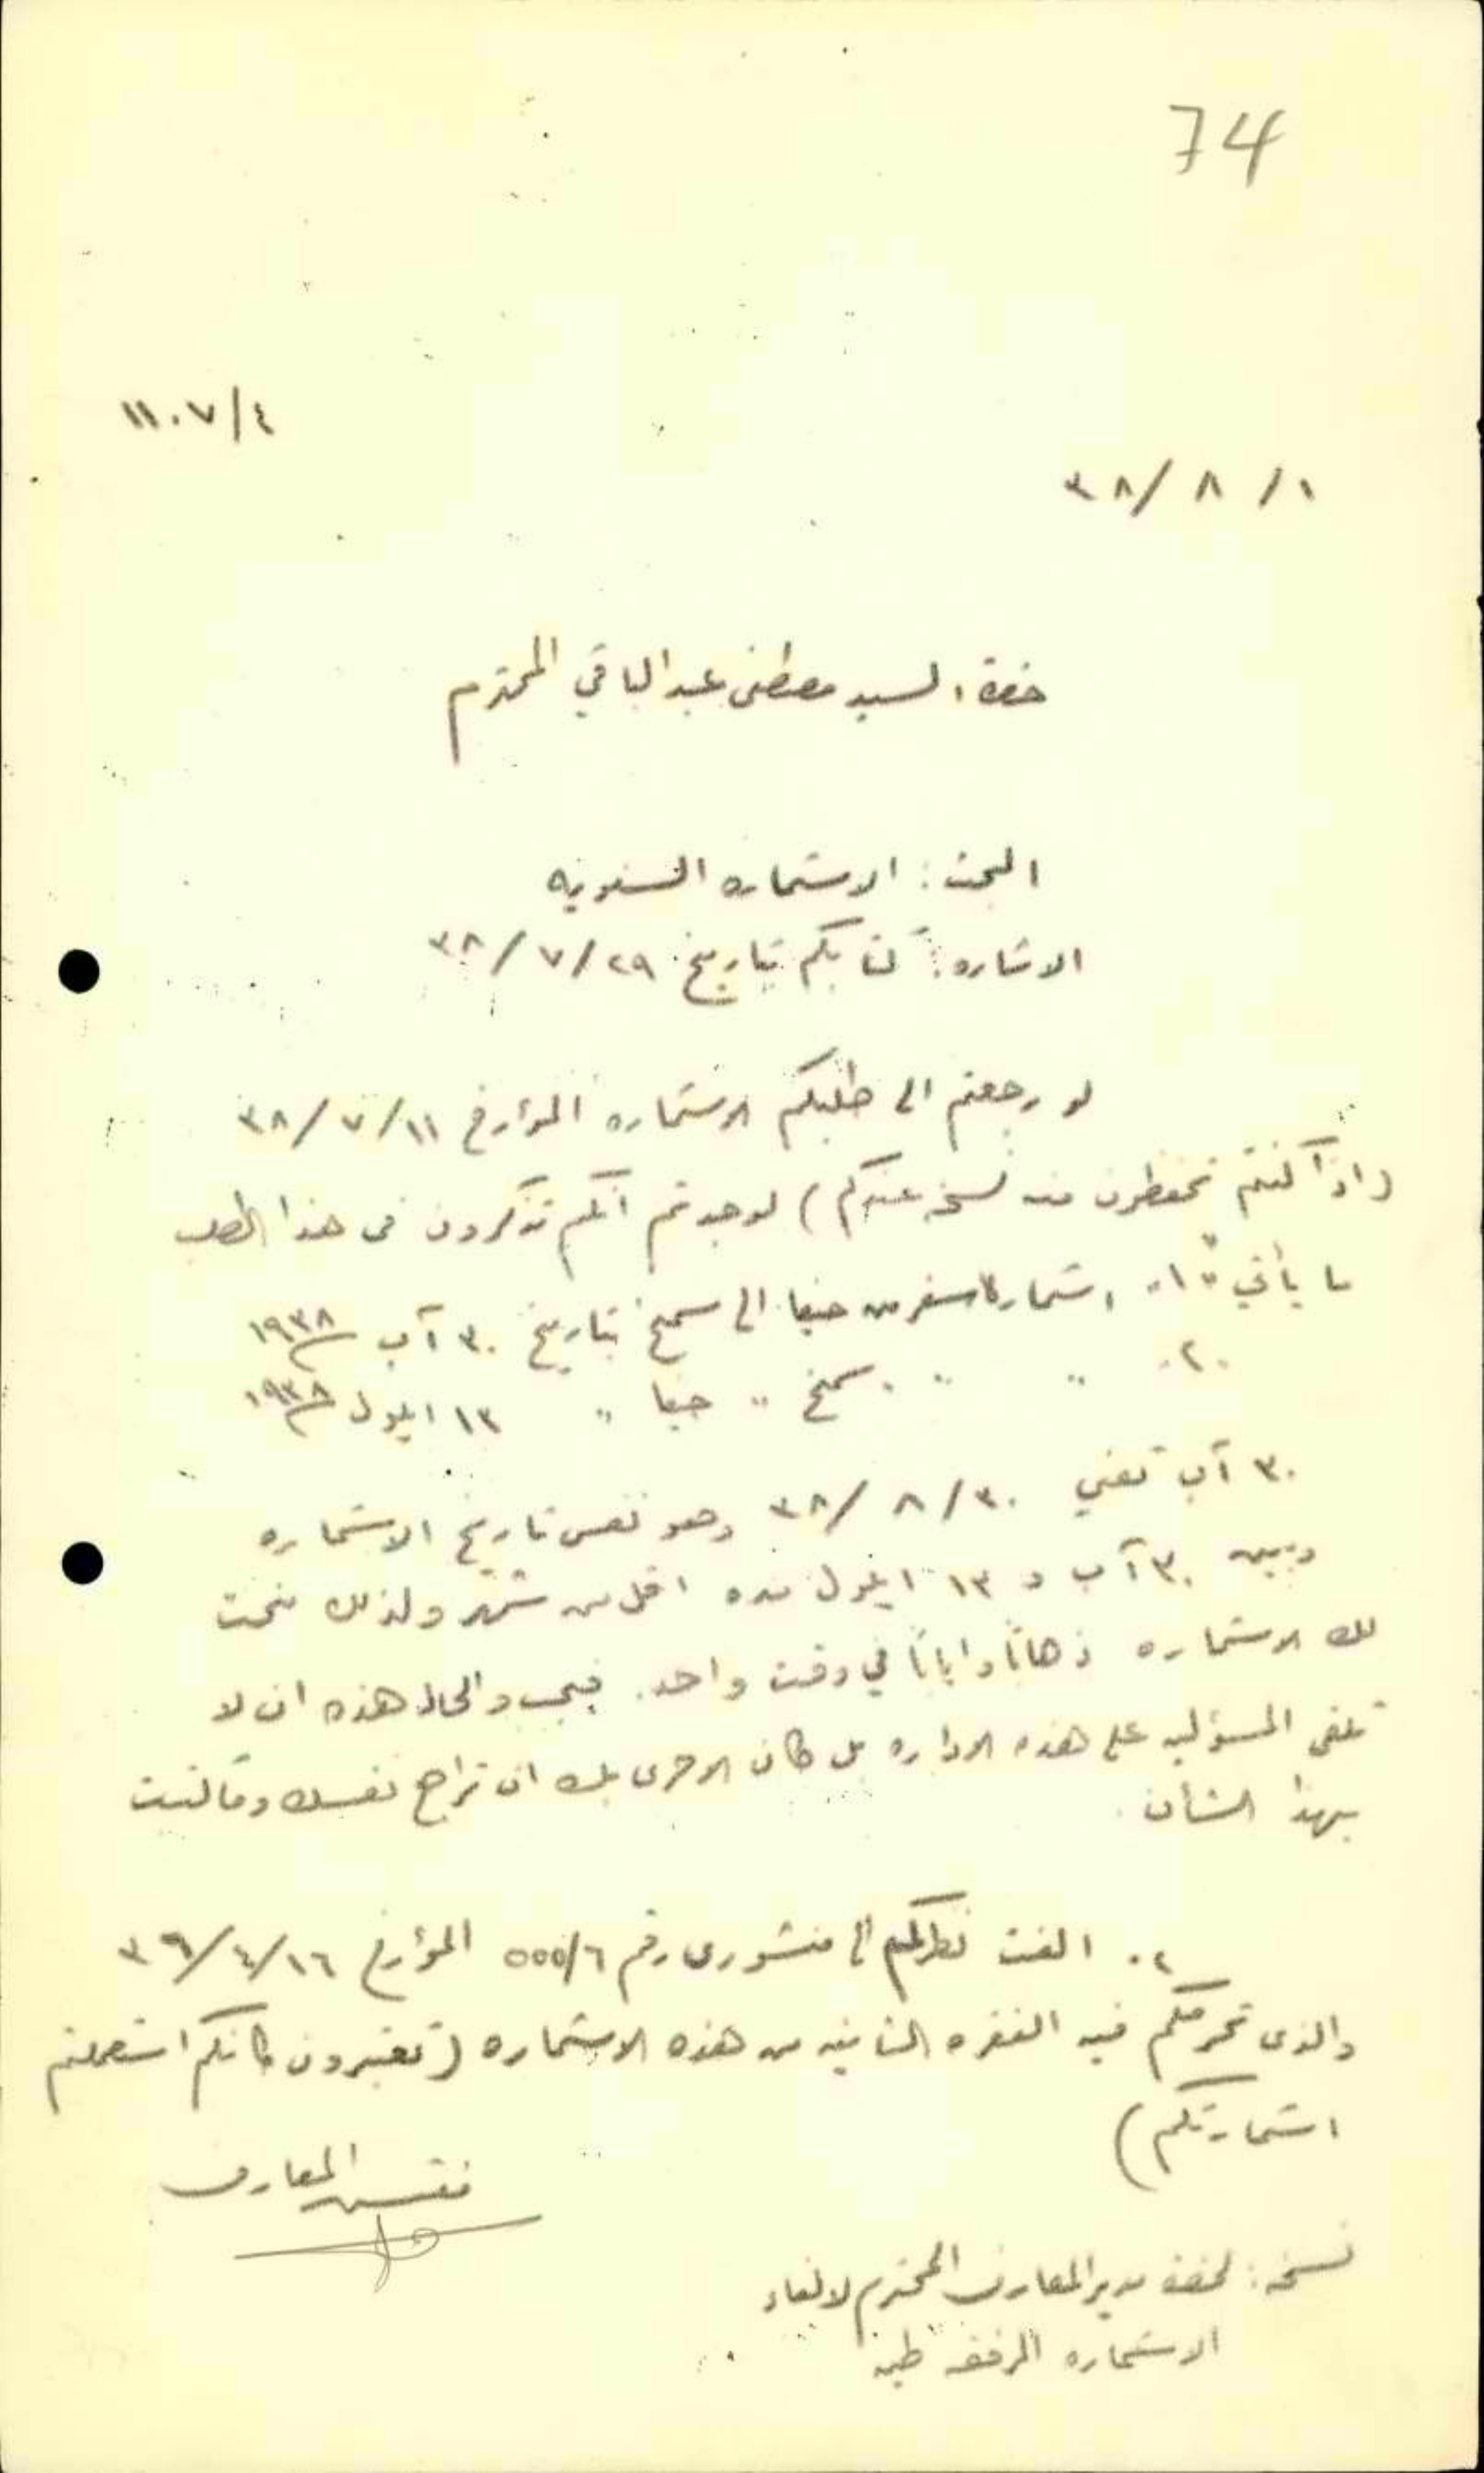 74
١١٠٧/٤
٣٨/ ٨ /١
حضرة السيد مصطفى عبد الباقي المحترم
البحث : الاستماره السنويه
الاشاره : كتابكم بتاريخ ٣٨/٧/٢٩
لو رجعتم الى طلبكم الاستماره المؤرخ ٣٨/٧/١١
(اذا كنتم تحفظون منه نسخه عندكم) لوجدتم انكم تذكرون في هذا الطلب
ما يأتي " ١. استمارة سفر من حيفا الى سمخ بتاريخ ٣٠ آب ١٩٣٨
٢. " " سمخ " حيفا " ١٣ ايلول ١٩٣٨
٣٠ آب تعني ٣٨/ ٨/٣٠ وهو نفس تاريخ الاستماره
وبين ٣٠ آب و ١٣ ايلول مده اقل من شهر ولذلك منحت
لك الاستماره ذهابًا وايابًا في وقت واحد. فيجب والحاله هذه ان لا
تلقى المسؤليه على هذه الاداره بل كان الاحرى بك ان تراجع نفسك وما كتبت
بهذا الشأن.
٢. الفت نظركم الى منشوري رقم ٥٥٥/٦ المؤرخ ٣٦/٤/١٦
والذي تحرمكم فيه الفقره الثانيه من هذه الاستماره (تعتبرون كانكم استعملتم
استمارتكم)
مفتش المعارف
نسخه : لحضرة مدير المعارف المحترم لالغاء
الاستماره المرفقه طيه